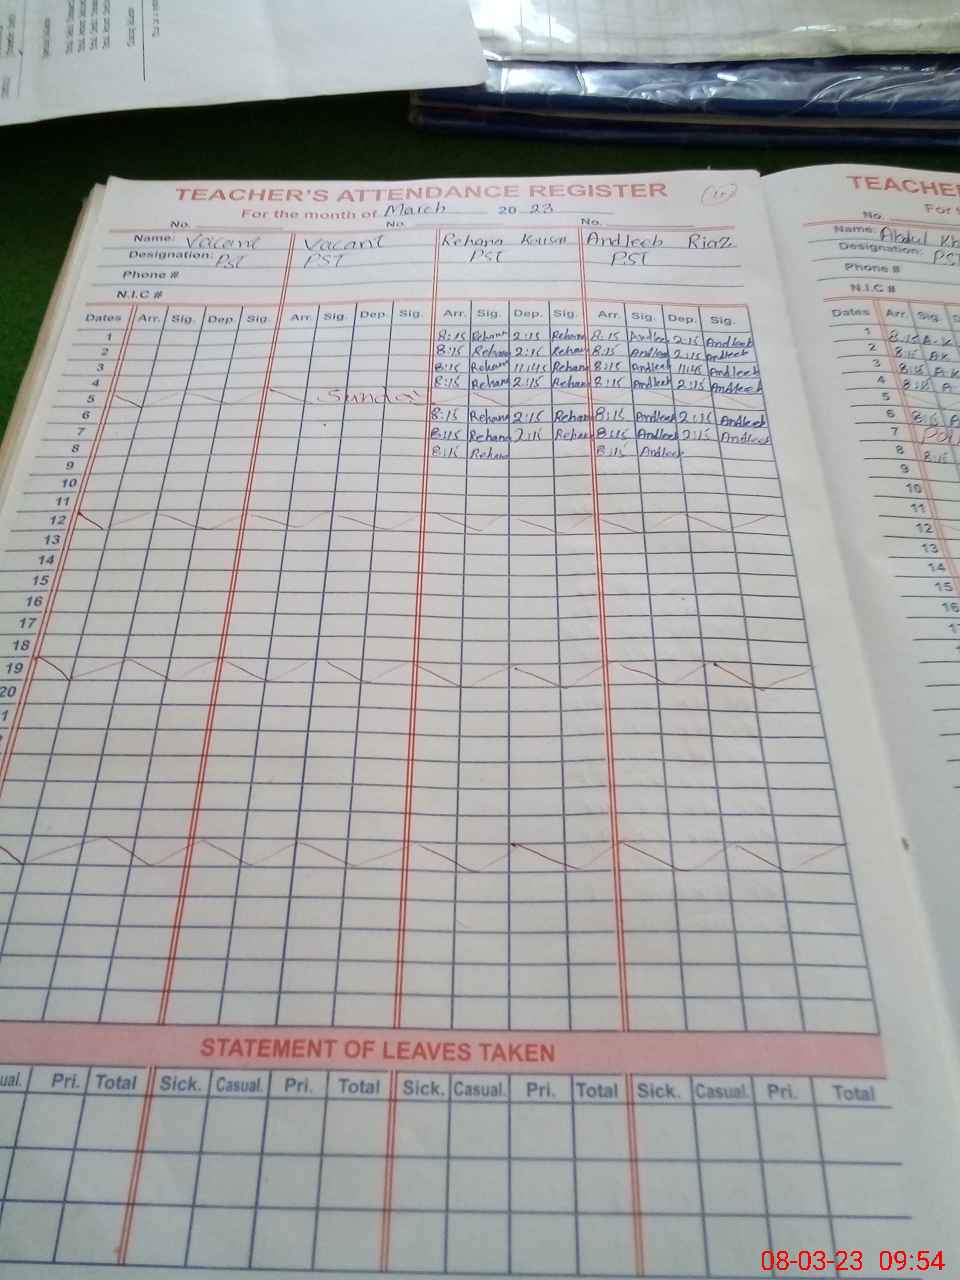 TEACHER'S ATTENDANCE REGISTER
For the month of March 20 23
No. No. No.
Name: Vacant Vacant Rehana Kousar Andleeb Riaz
Designation: PST PST PST PST
Phone #
N.I.C #
Dates Arr. Sig. Dep. Sig. Arr. Sig. Dep. Sig. Arr. Sig. Dep. Sig. Arr. Sig. Dep. Sig.
1 8:15 Rehana 2:15 Rehana 8:15 Andleeb 2:15 Andleeb
2 8:15 Rehana 2:15 Rehana 8:15 Andleeb 2:15 Andleeb
3 8:15 Rehana 11:45 Rehana 8:15 Andleeb 11:45 Andleeb
4 8:15 Rehana 2:15 Rehana 8:15 Andleeb 2:15 Andleeb
5 Sunday
6 8:15 Rehana 2:15 Rehana 8:15 Andleeb 2:15 Andleeb
7 8:15 Rehana 2:15 Rehana 8:15 Andleeb 2:15 Andleeb
8 8:15 Rehana 8:15 Andleeb
9
10
11
12
13
14
15
16
17
18
19
20
STATEMENT OF LEAVES TAKEN
Pri. Total Sick. Casual. Pri. Total Sick. Casual. Pri. Total Sick. Casual. Pri. Total
TEACHER
No.
Name: Abdul
Designation: PST
Phone #
N.I.C #
Dates Arr. Sig.
1 8:15 A.K
2 8:15 A.K
3 8:15 A.K
4 8:15 A
5
6 8:15 A
7
8 8:15
9
10
11
12
13
14
15
16
08-03-23 09:54